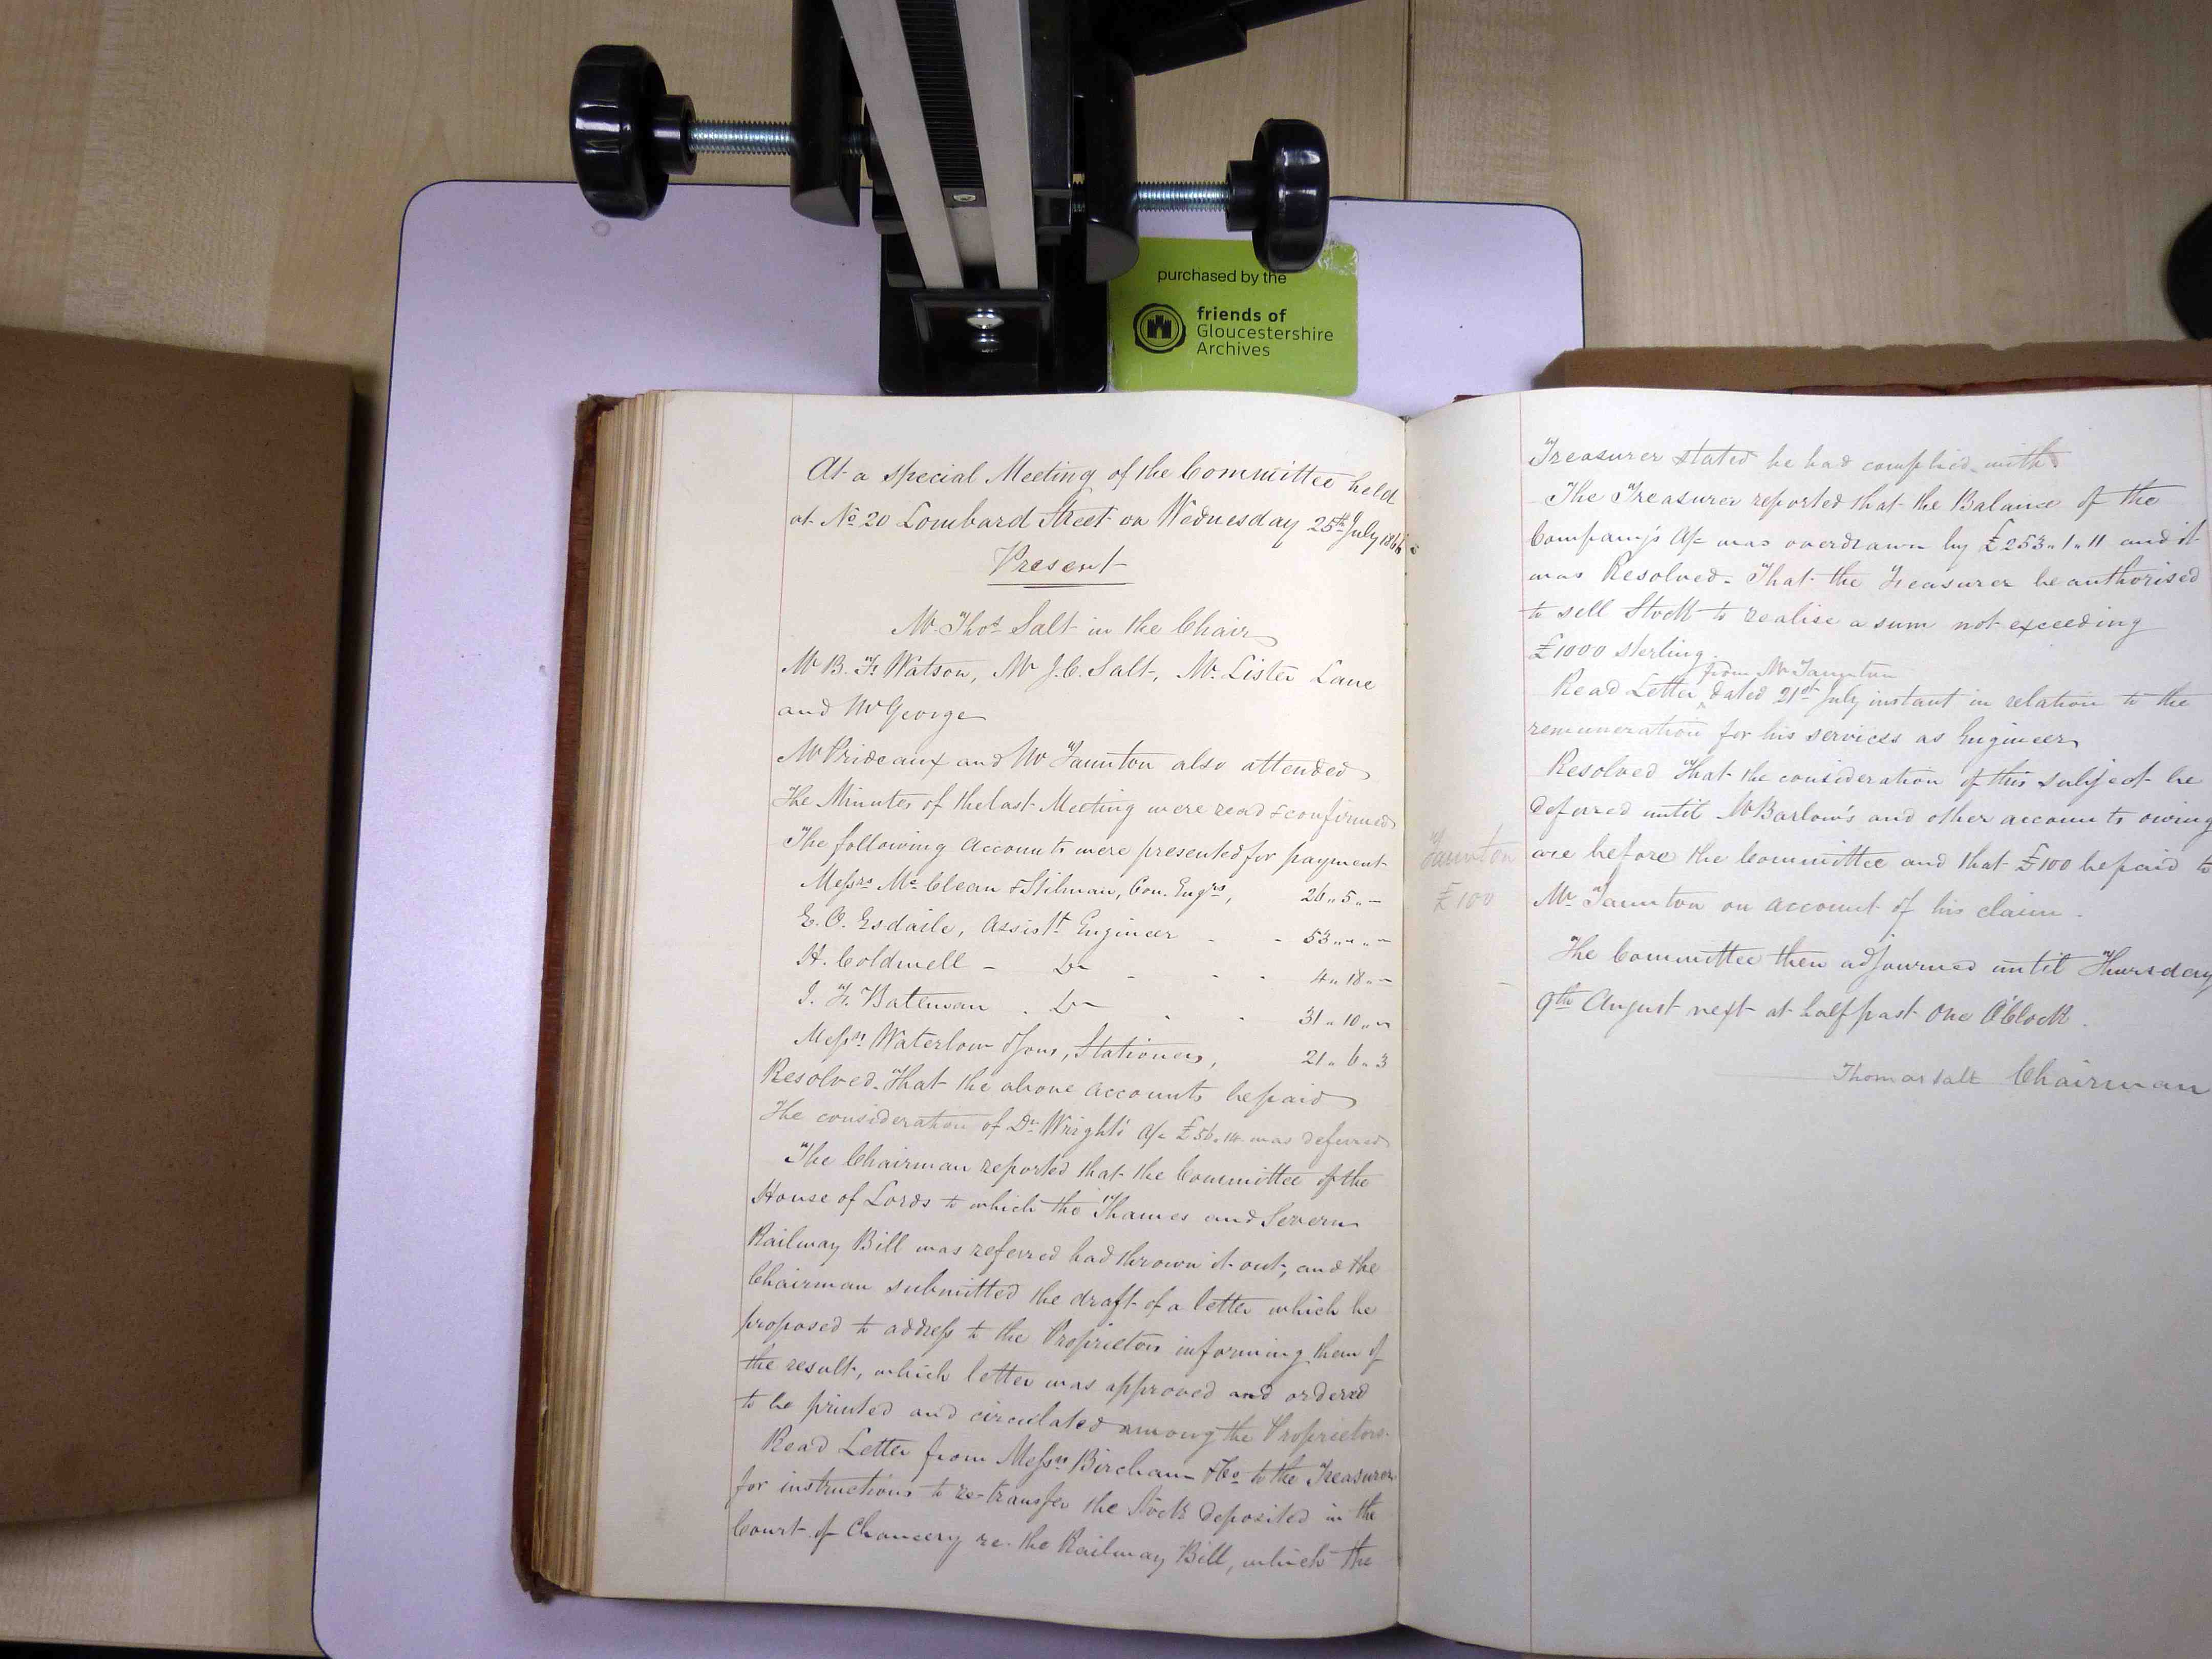 purchased by the
friends of
Gloucestershire
Archives
At a special Meeting of the Committee held
at No 20 Lombard Street on Wednesday 25th July 1866
Present
Mr Thos Salt in the Chair
Mr B. F. Watson, Mr J. C. Salt, Mr Lister Lane
and Mr George
Mr Prideaux and Mr Taunton also attended
The Minutes of the last Meeting were read & confirmed
The following Accounts were presented for payment
Messrs McClean & Stilman, Con. Engrs, 26 " 5 " -
E. O. Esdaile, Assist Engineer - - 53 " - " -
H. Coldwell - Do - - - 4 " 18 " -
J. F. Bateman . Do - - 31 " 10 " -
Messrs Waterlow & Sons, Stationers, 21 " 6 " 3
Resolved. That the above accounts be paid
The consideration of Dr Wright's A/c £56.14 was deferred
The Chairman reported that the Committee of the
House of Lords to which the Thames and Severn
Railway Bill was referred had thrown it out, and the
Chairman submitted the draft of a letter which he
proposed to address to the Proprietors informing them of
the result, which letter was approved and ordered
to be printed and circulated among the Proprietors.
Read Letter from Messrs Bircham & Co to the Treasurer
for instructions to re-transfer the Stock deposited in the
Court of Chancery re. the Railway Bill, which the
Treasurer stated he had complied with
The Treasurer reported that the Balance of the
Company's A/c was overdrawn by £253 " 1 " 11 and it
was Resolved. That the Treasurer be authorised
to sell Stock to realise a sum not exceeding
£1000 sterling.
from Mr Taunton
Read Letter dated 21st July instant in relation to the
remuneration for his services as Engineer
Resolved That the consideration of this subject be
deferred until Mr Barlow's and other accounts owing
Taunton are before the Committee and that £100 be paid to
£100 Mr Taunton on account of his claim.
The Committee then adjourned until Thursday
9th August next at half past One O'Clock.
Thomas Salt Chairman